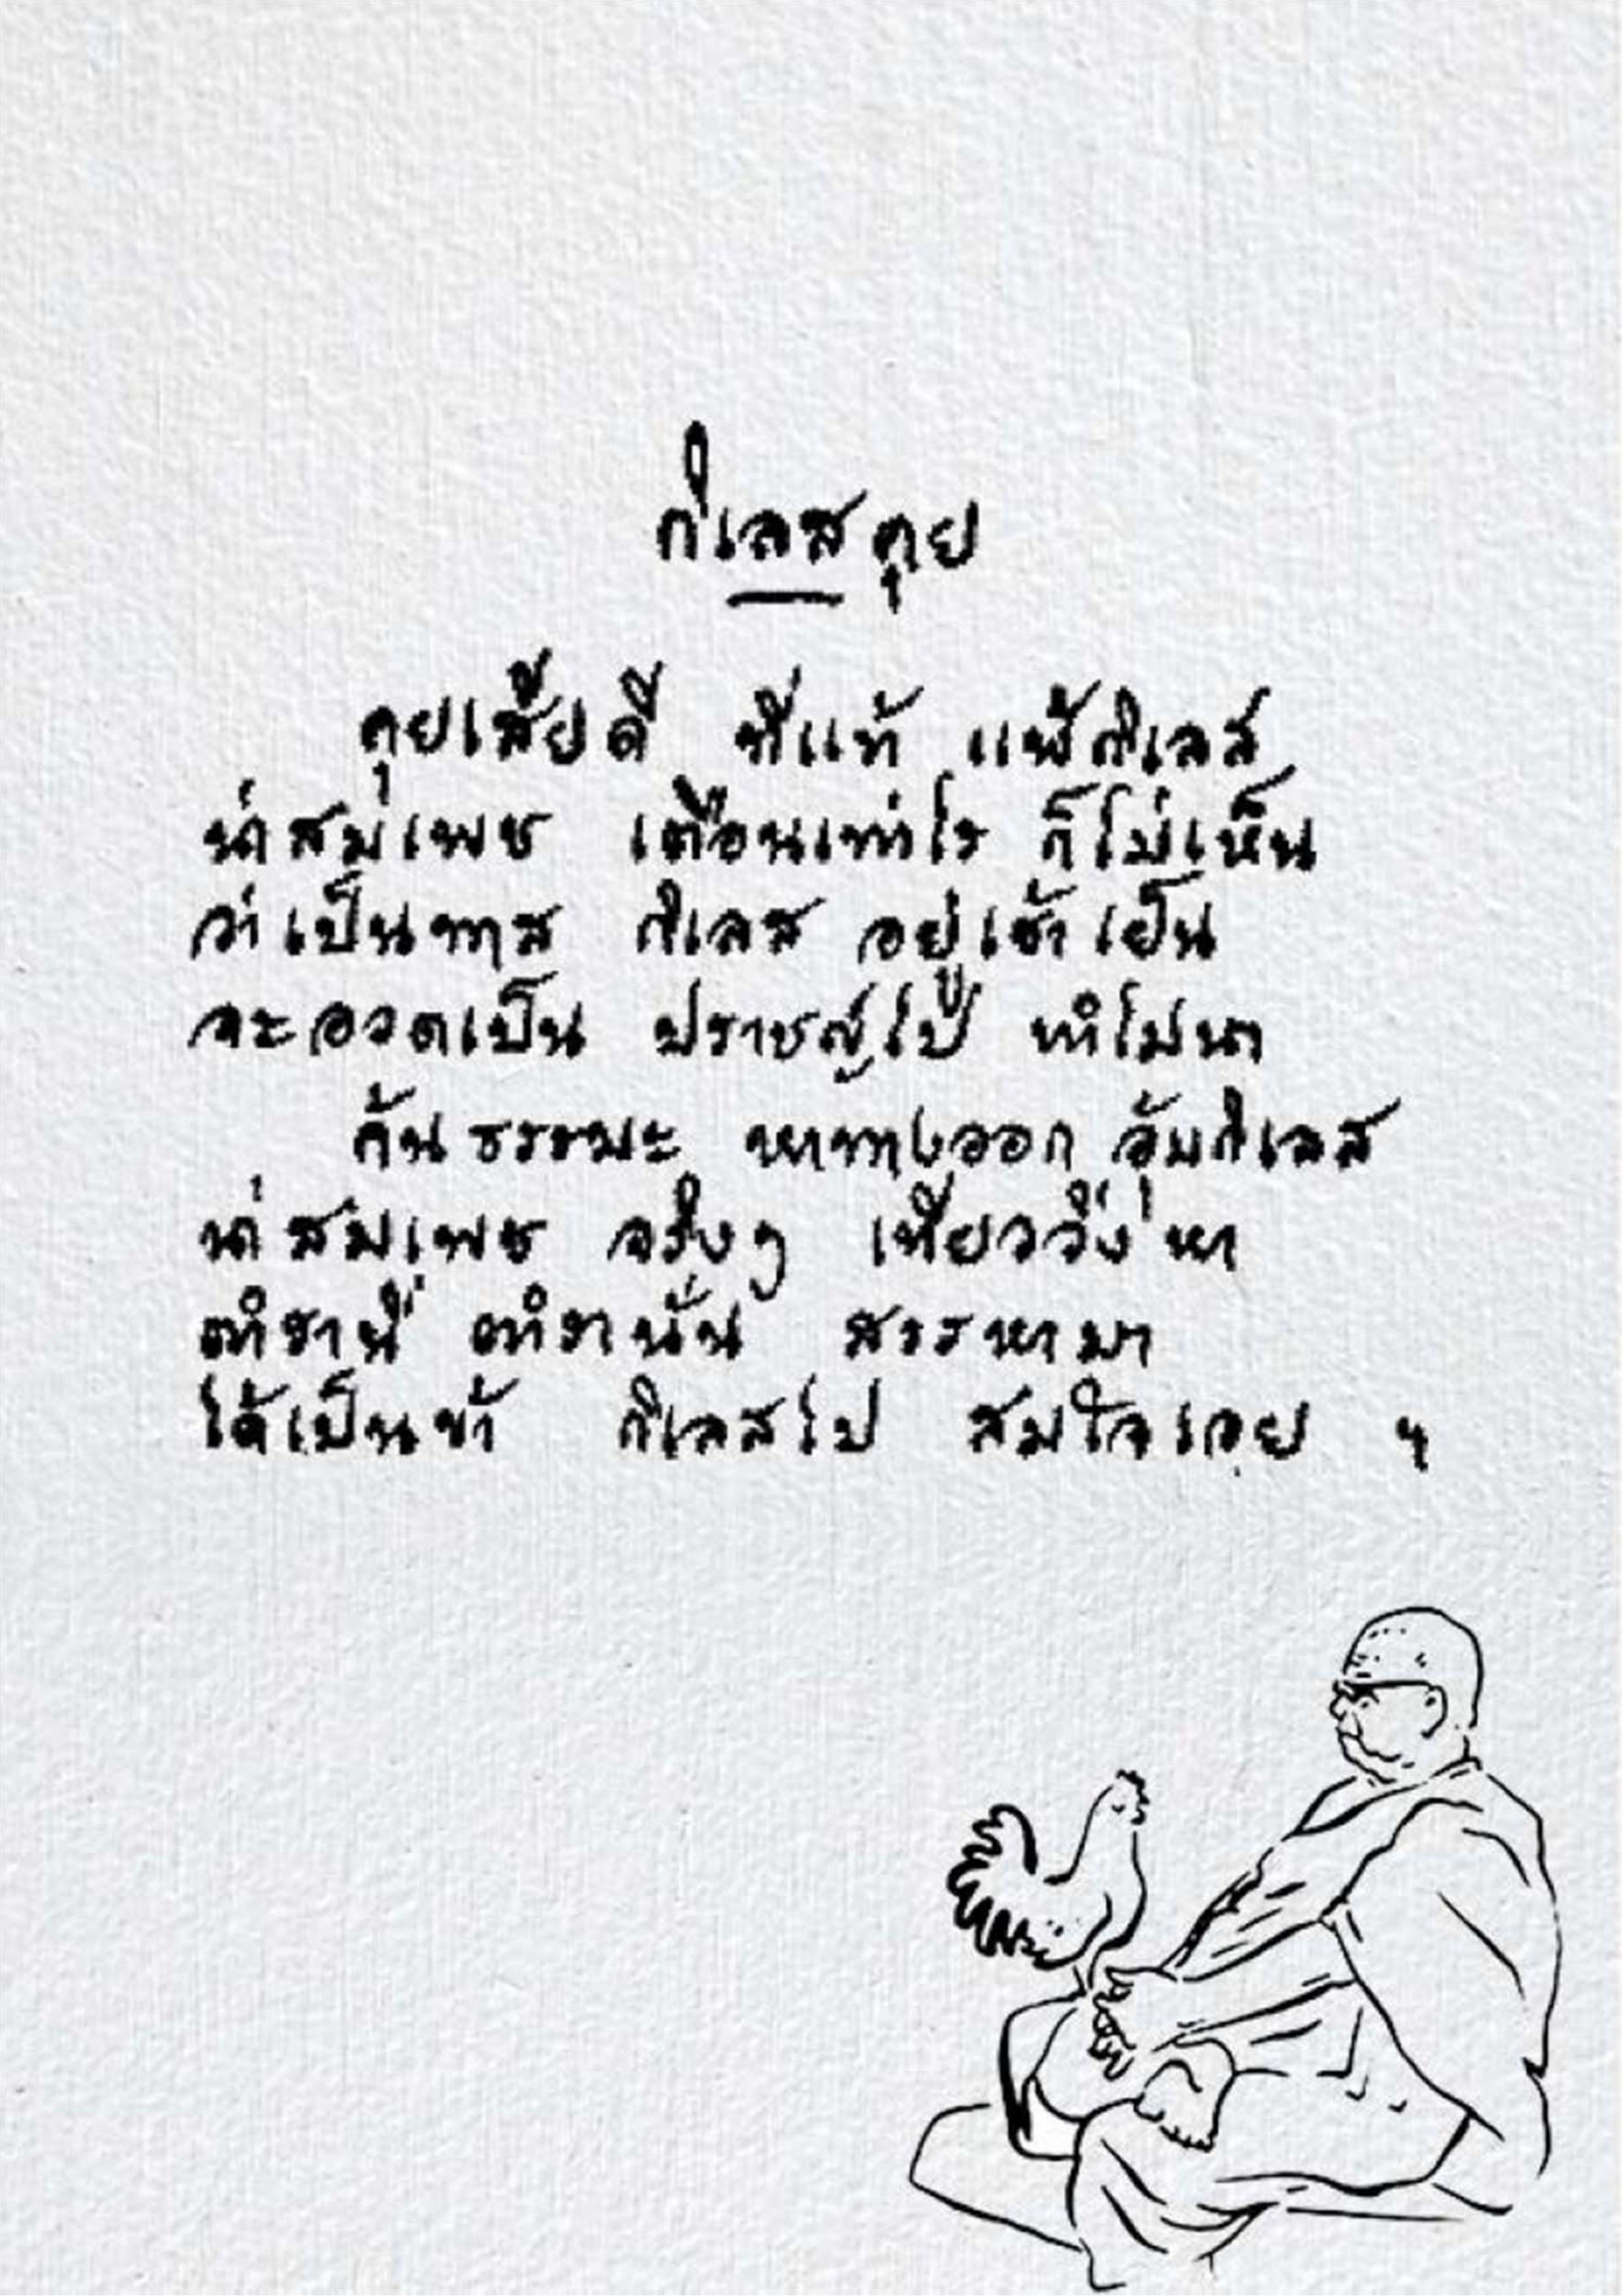 กิเลสคุย
คุยเสียดี ที่แท้ แพ้กิเลส
น่าสมเพช เตือนเท่าไร ก็ไม่เห็น
ว่าเป็นทาส กิเลส อยู่เช้าเย็น
จะอวดเป็น ปราชญ์ไป ทำไมนา
ค้นธรรมะ หาทางออก อุ้มกิเลส
น่าสมเพช จริงๆ เที่ยววิ่งหา
ตำรานี้ ตำรานั่น สรรหามา
ได้เป็นข้า กิเลสไป สมใจเอย ฯ